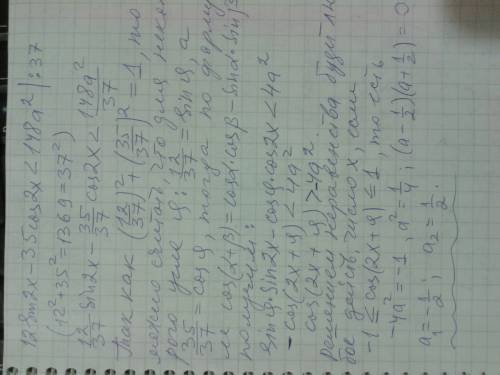 12sin2x-35cos2x<148a²|:37
(12²+35²=1369=37²)
12/37 sin2x - 35/37 cos2x < 148a²/37
Так как (12/37)² + (35/37)² = 1, то
можно считать, что для неко-
рого угла φ: 12/37 = sinφ, а
35/37 = cosφ, тогда по форму
ле cos(α+β)=cosα·cosβ-sinα·sinβ
получим:
sinφ·sin2x-cosφ·cos2x<4a²
-cos(2x+φ)<4a²
cos(2x+φ)>-4a².
Решением неравенства будет лю
бое действ. число x, если
-1≤cos(2x+φ)≤1, то есть
-4a²=-1, a²=1/4; (a-1/2)(a+1/2)=0
a₁=-1/2; a₂=1/2.